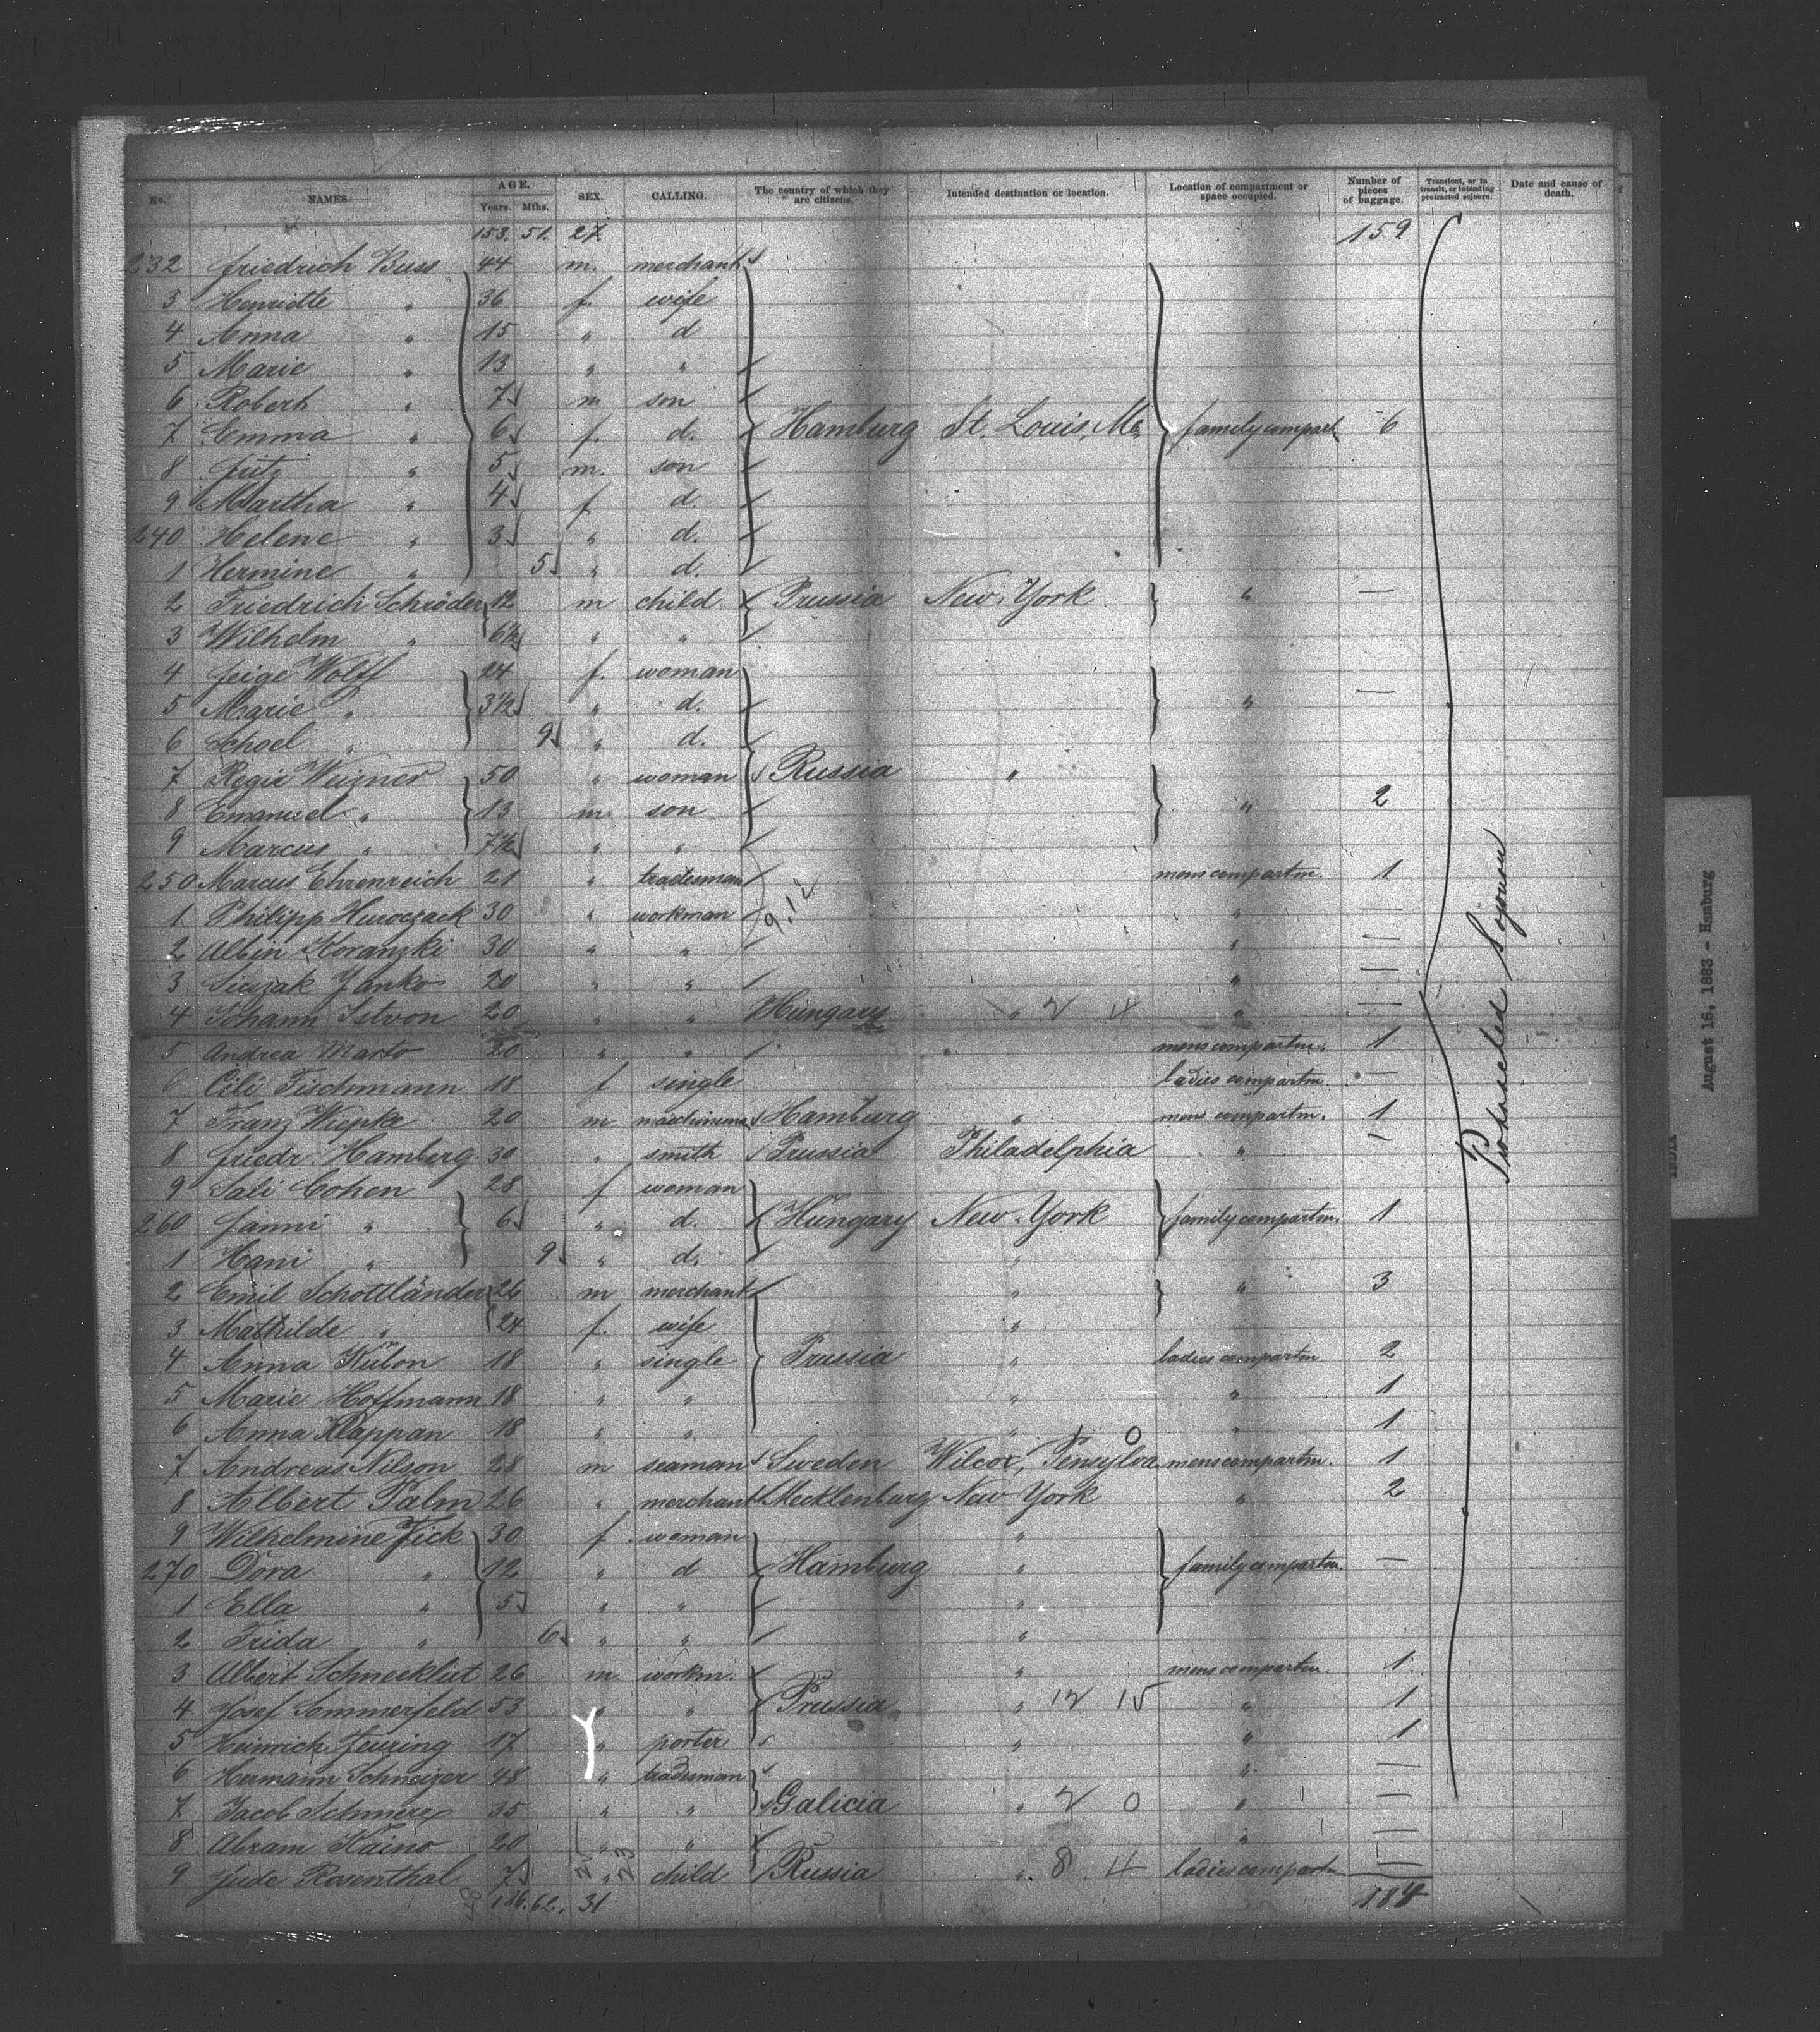 No. NAMES. AGE. Years. Mths. SEX. CALLING. The country of which they are citizens. Intended destination or location. Location of compartment or space occupied. Number of pieces of baggage. Transient, or in transit, or intending protracted sojourn. Date and cause of death.
153. 51. 27 159
232 Friedrich Buss 44 m. merchant
3 Henriette " 36 f. wife
4 Anna " 15 " d
5 Marie " 13 " "
6 Robert " 7 m son
7 Emma " 6 f. d. Hamburg St. Louis, Mo. family compart. 6
8 Fritz " 5 m. son
9 Martha " 4 f d.
240 Helene " 3 " d.
1 Hermine " 5 " d.
2 Friedrich Schröder 12 m child Prussia New York " —
3 Wilhelm " 6½ " "
4 Feige Wolff 24 f. woman
5 Marie " 3½ " d. " —
6 Schoel " 9 " d.
7 Regie Weizner 50 " woman Russia "
8 Emanuel " 13 m. son " 2
9 Marcus " 7½ " "
250 Marcus Ehrenreich 21 " tradesman mens compartm. 1
1 Philipp Huroczack 30 " workman 9.12 " —
2 Albin Koranzki 30 " " " —
3 Janko 20 " " " —
4 Johann Istvon 20 " " Hungary " 2 4 " —
5 Andrea Marto 20 " " mens compartm. 1
6 Cili Fischmann 18 f single ladies compartm. —
7 Franz Wiepke 20 m. Hamburg " mens compartm. 1
8 Friedr. Hamberg 30 " smith Prussia Philadelphia " —
9 Sali Cohen 28 f woman
260 Fanni " 6 " d. Hungary New York family compartm. 1
1 Hani " 9 " d. "
2 Emil Schottländer 26 m merchant " " 3
3 Mathilde " 24 f. wife "
4 Anna Kubon 18 " single Prussia " ladies compartm 2
5 Marie Hoffmann 18 " " " " 1
6 Anna Klappan 18 " " " 0 " 1
7 Andreas Nilson 28 m seaman Sweden Wilcox, Pensylva mens compartm. 1
8 Albert Palm 26 " merchant Mecklenburg New York " 2
9 Wilhelmine Fick 30 f. woman "
270 Dora " 12 " d Hamburg " family compartm. —
1 Ella " 5 " " "
2 Frida " 6 " " "
3 Albert Schneeklut 26 m. workm. " mens compartm. 1
4 Josef Sommerfeld 53 " " Prussia " 12 15 " 1
5 Heinrich Jeuring 17 " porter " " 1
6 Hermann Schneizer 48 " tradesman " —
7 Jacob Schmerz 35 " " Galicia " 2 0 " —
8 Abram Kaino 20 " " " —
9 Jude Rosenthal 7 " child Russia " 8 4 ladies compartm —
186. 62. 31 184
25 23
Protracted Sojourn
August 16, 1883 - Hamburg
INDIA